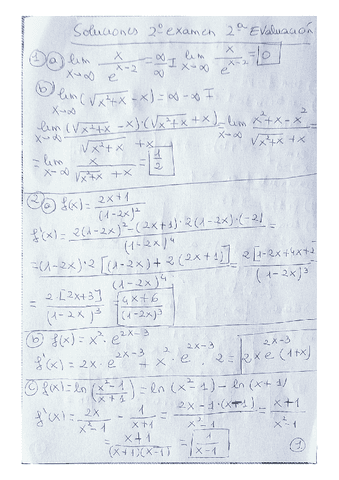 Soluciones 2º examen 2ª Evaluación
1) a) lim x→∞ x/e^(x-2) = ∞/∞ I lim x→∞ x/e^(x-2) = 0
b) lim x→∞ (√(x²+x) - x) = ∞ - ∞ I
lim x→∞ (√(x²+x) - x)·(√(x²+x) + x)/(√(x²+x) + x) = lim x→∞ (x²+x-x²)/(√(x²+x) + x) =
= lim x→∞ x/(√(x²+x) + x) = 1/2
2) a) f(x) = (2x+1)/(1-2x)²
f'(x) = (2(1-2x)² - (2x+1)·2(1-2x)·(-2))/(1-2x)⁴ =
= (1-2x)·2[(1-2x)+2(2x+1)]/(1-2x)⁴ = 2[1-2x+4x+2]/(1-2x)³
= 2[2x+3]/(1-2x)³ = (4x+6)/(1-2x)³
b) f(x) = x²·e^(2x-3)
f'(x) = 2x·e^(2x-3) + x²·e^(2x-3)·2 = 2x e^(2x-3) (1+x)
c) f(x) = ln((x²-1)/(x+1)) = ln(x²-1) - ln(x+1)
f'(x) = 2x/(x²-1) - 1/(x+1) = (2x-1·(x-1))/(x²-1) = (x+1)/(x²-1)
= (x+1)/((x+1)(x-1)) = 1/(x-1)
1